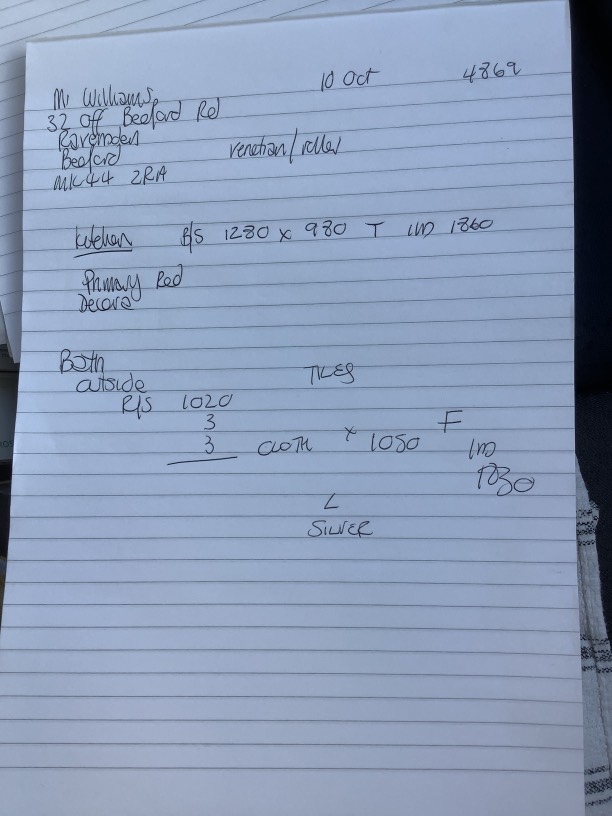 Mr Williams 10 Oct 4869
32 Off Bedford Rd
Ravensden
Bedford venetian/roller
MK44 2RA
Kitchen R/S 1280 x 980 T IND 1860
Primary Red
Decora
Both
outside TILES
R/S 1020
3 F
3 CLOTH x 1050 IND
1830
L
SILVER